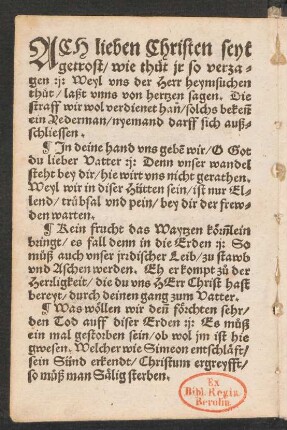 ACH lieben Christen seyt
getrost / wie thůt jr so verza-
gen :||: Weyl vns der Herr heymsůchen
thůt / laßt vnns von hertzen sagen. Die
straff wir wol verdienet han / solchs bekeñ
ein Yederman / nyemand darff sich auß-
schliessen.
¶ In deine hand vns gebẽ wir / O Got
du lieber Vatter :||: Denn vnser wandel
steht bey dir / hie wirt vns nicht gerathen.
Weyl wir in diser Hütten sein / ist nur El-
lend / trübsal vnd pein / bey dir der frew-
den warten.
¶ Kein frucht das Waytzen kőrnlein
bringt / es fall denn in die Erden :||: So
můß auch vnser jrdischer Leib / zu stawb
vnd Aschen werden. Eh er kompt zů der
Herrligkeit / die du vns HErr Christ hast
bereyt / durch deinen gang zum Vatter.
¶ Was wőllen wir deñ főrchten sehr /
den Tod auff diser Erden :||: Es můß
ein mal gestorben sein / ob wol jm ist hie
gwesen. Welcher wie Simeon entschläfft /
sein Sünd erkendt / Christum ergreyfft /
so můß man Sälig sterben.
Ex
Bibl. Regia
Berolin.